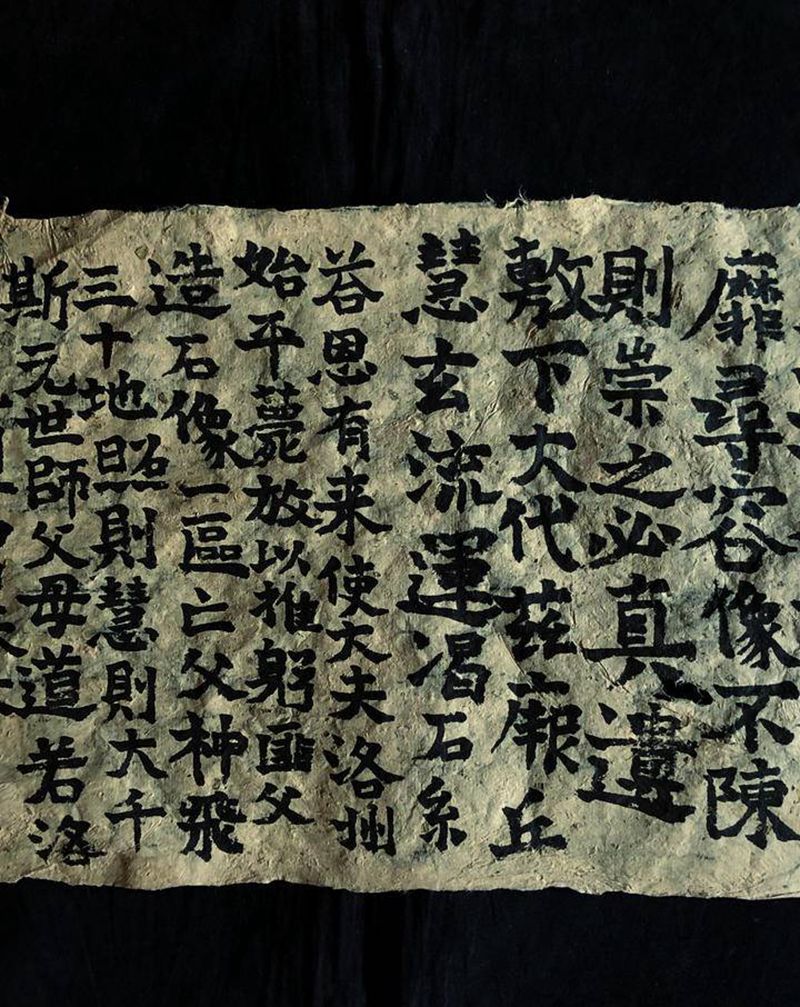 靡尋容像不陳
則崇之必真遺
敷下大代茲厥丘
慧玄流運渴石系
荅恩有来使大夫洛州
始平薨放以摧躬匪父
造石像一區亡父神飛
三十地照則慧則大千
斯元世師父母道若洛